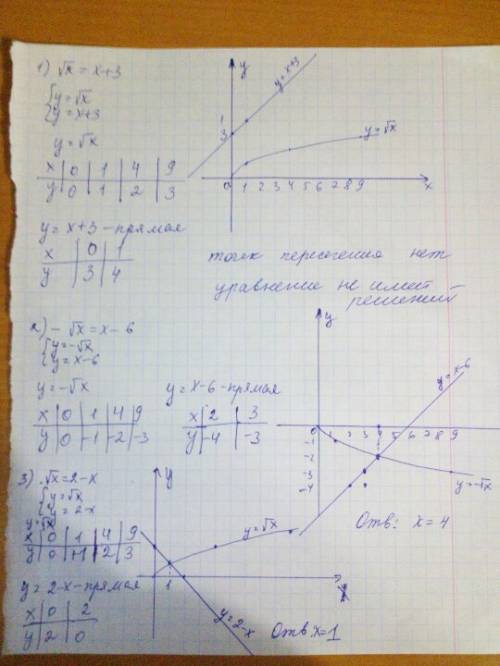 1) √x = x+3
{ y = √x
{ y = x+3
y = √x
x | 0 | 1 | 4 | 9
y | 0 | 1 | 2 | 3
y = x+3 - прямая
x | 0 | 1
y | 3 | 4
y
y=x+3
y=√x
3
0 1 2 3 4 5 6 7 8 9
x
точек пересечения нет
уравнение не имеет
решений
2) -√x = x-6
{ y = -√x
{ y = x-6
y = -√x
x | 0 | 1 | 4 | 9
y | 0 | -1 | -2 | -3
y = x-6 - прямая
x | 2 | 3
y | -4 | -3
y
y=x-6
0 1 2 3 4 5 6 7 8 9
-1
-2
-3
-4
y=-√x
Отв: x=4
3) √x = 2-x
{ y = √x
{ y = 2-x
y=√x
x | 0 | 1 | 4 | 9
y | 0 | 1 | 2 | 3
y = 2-x - прямая
x | 0 | 2
y | 2 | 0
y
y=√x
1
x
y=2-x
Отв. x=1